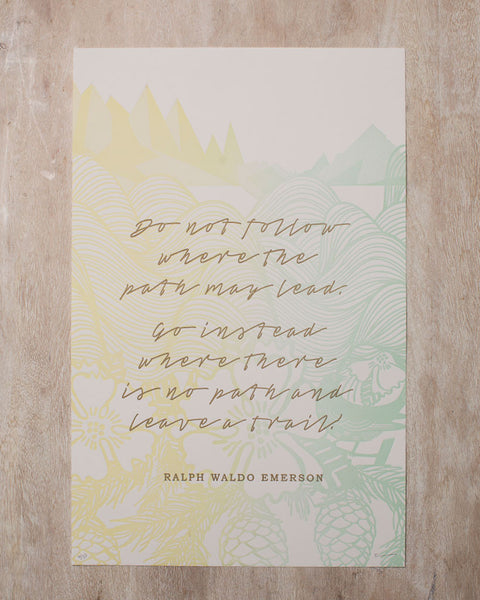 Do not follow
where the
path may lead.
Go instead
where there
is no path and
leave a trail.
RALPH WALDO EMERSON